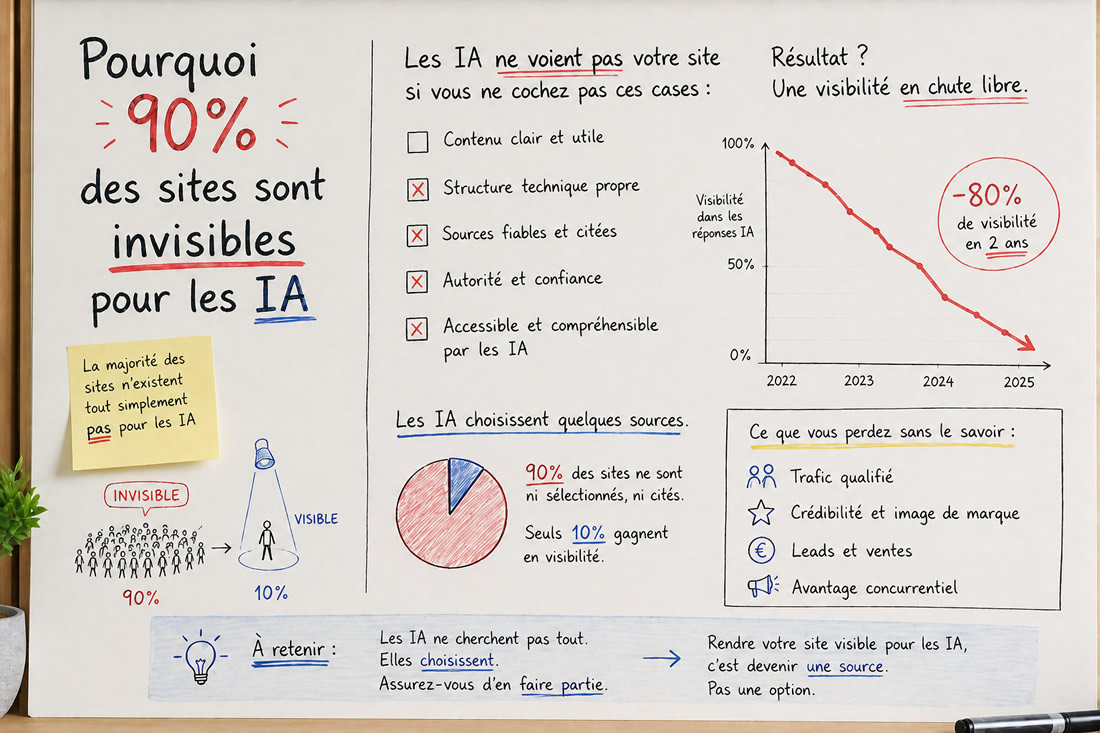 Pourquoi
90%
des sites sont
invisibles
pour les IA
La majorité des
sites n'existent
tout simplement
pas pour les IA
INVISIBLE
VISIBLE
90%
10%
Les IA ne voient pas votre site
si vous ne cochez pas ces cases :
Contenu clair et utile
Structure technique propre
Sources fiables et citées
Autorité et confiance
Accessible et compréhensible
par les IA
Résultat ?
Une visibilité en chute libre.
100%
Visibilité
dans les
réponses IA
50%
0%
2022
2023
2024
2025
-80%
de visibilité
en 2 ans
Les IA choisissent quelques sources.
90% des sites ne sont
ni sélectionnés, ni cités.
Seuls 10% gagnent
en visibilité.
Ce que vous perdez sans le savoir :
Trafic qualifié
Crédibilité et image de marque
€
Leads et ventes
Avantage concurrentiel
À retenir :
Les IA ne cherchent pas tout.
Elles choisissent.
Assurez-vous d'en faire partie.
Rendre votre site visible pour les IA,
c'est devenir une source.
Pas une option.